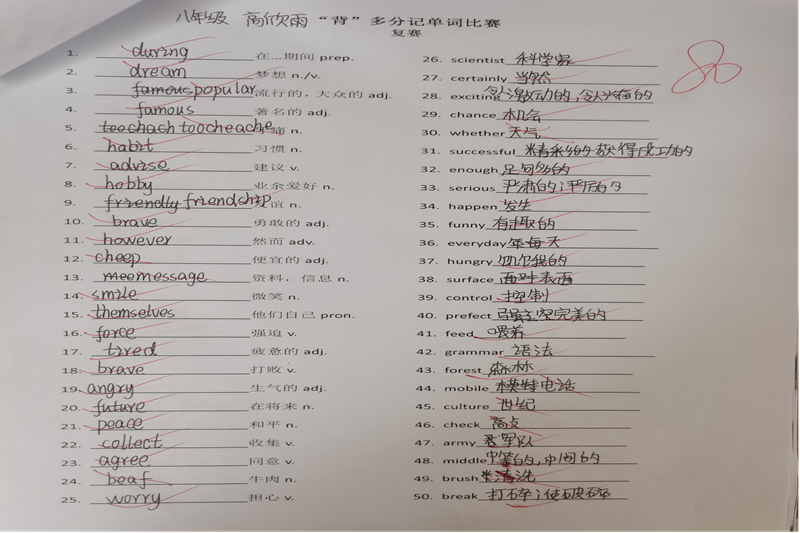 八年级 高欣雨 “背”多分记单词比赛
复赛
1. during 在…期间 prep.
2. dream 梦想 n./v.
3. famous popular 流行的，大众的 adj.
4. famous 著名的 adj.
5. toocheache 牙痛 n.
6. habit 习惯 n.
7. advise 建议 v.
8. hobby 业余爱好 n.
9. friendly friendship 友谊 n.
10. brave 勇敢的 adj.
11. however 然而 adv.
12. cheep 便宜的 adj.
13. meemessage 资料，信息 n.
14. smile 微笑 n.
15. themselves 他们自己 pron.
16. force 强迫 v.
17. tired 疲意的 adj.
18. brave 打败 v.
19. angry 生气的 adj.
20. future 在将来 n.
21. peace 和平 n.
22. collect 收集 v.
23. agree 同意 v.
24. beaf 牛肉 n.
25. worry 担心 v.
26. scientist 科学家
27. certainly 当然
28. exciting 令人激动的，令人兴奋的
29. chance 机会
30. whether 天气
31. successful 精彩的 获得成功的
32. enough 足够多的
33. serious 严肃的；严厉的
34. happen 发生
35. funny 有趣的
36. everyday 每天
37. hungry 饥饿的
38. surface 面对 表面
39. control 控制
40. prefect 完美的
41. feed 喂养
42. grammar 语法
43. forest 森林
44. mobile 模特 电话
45. culture 世纪
46. check
47. army 军队
48. middle 中等的，中间的
49. brush 清洗
50. break 打碎；使破碎